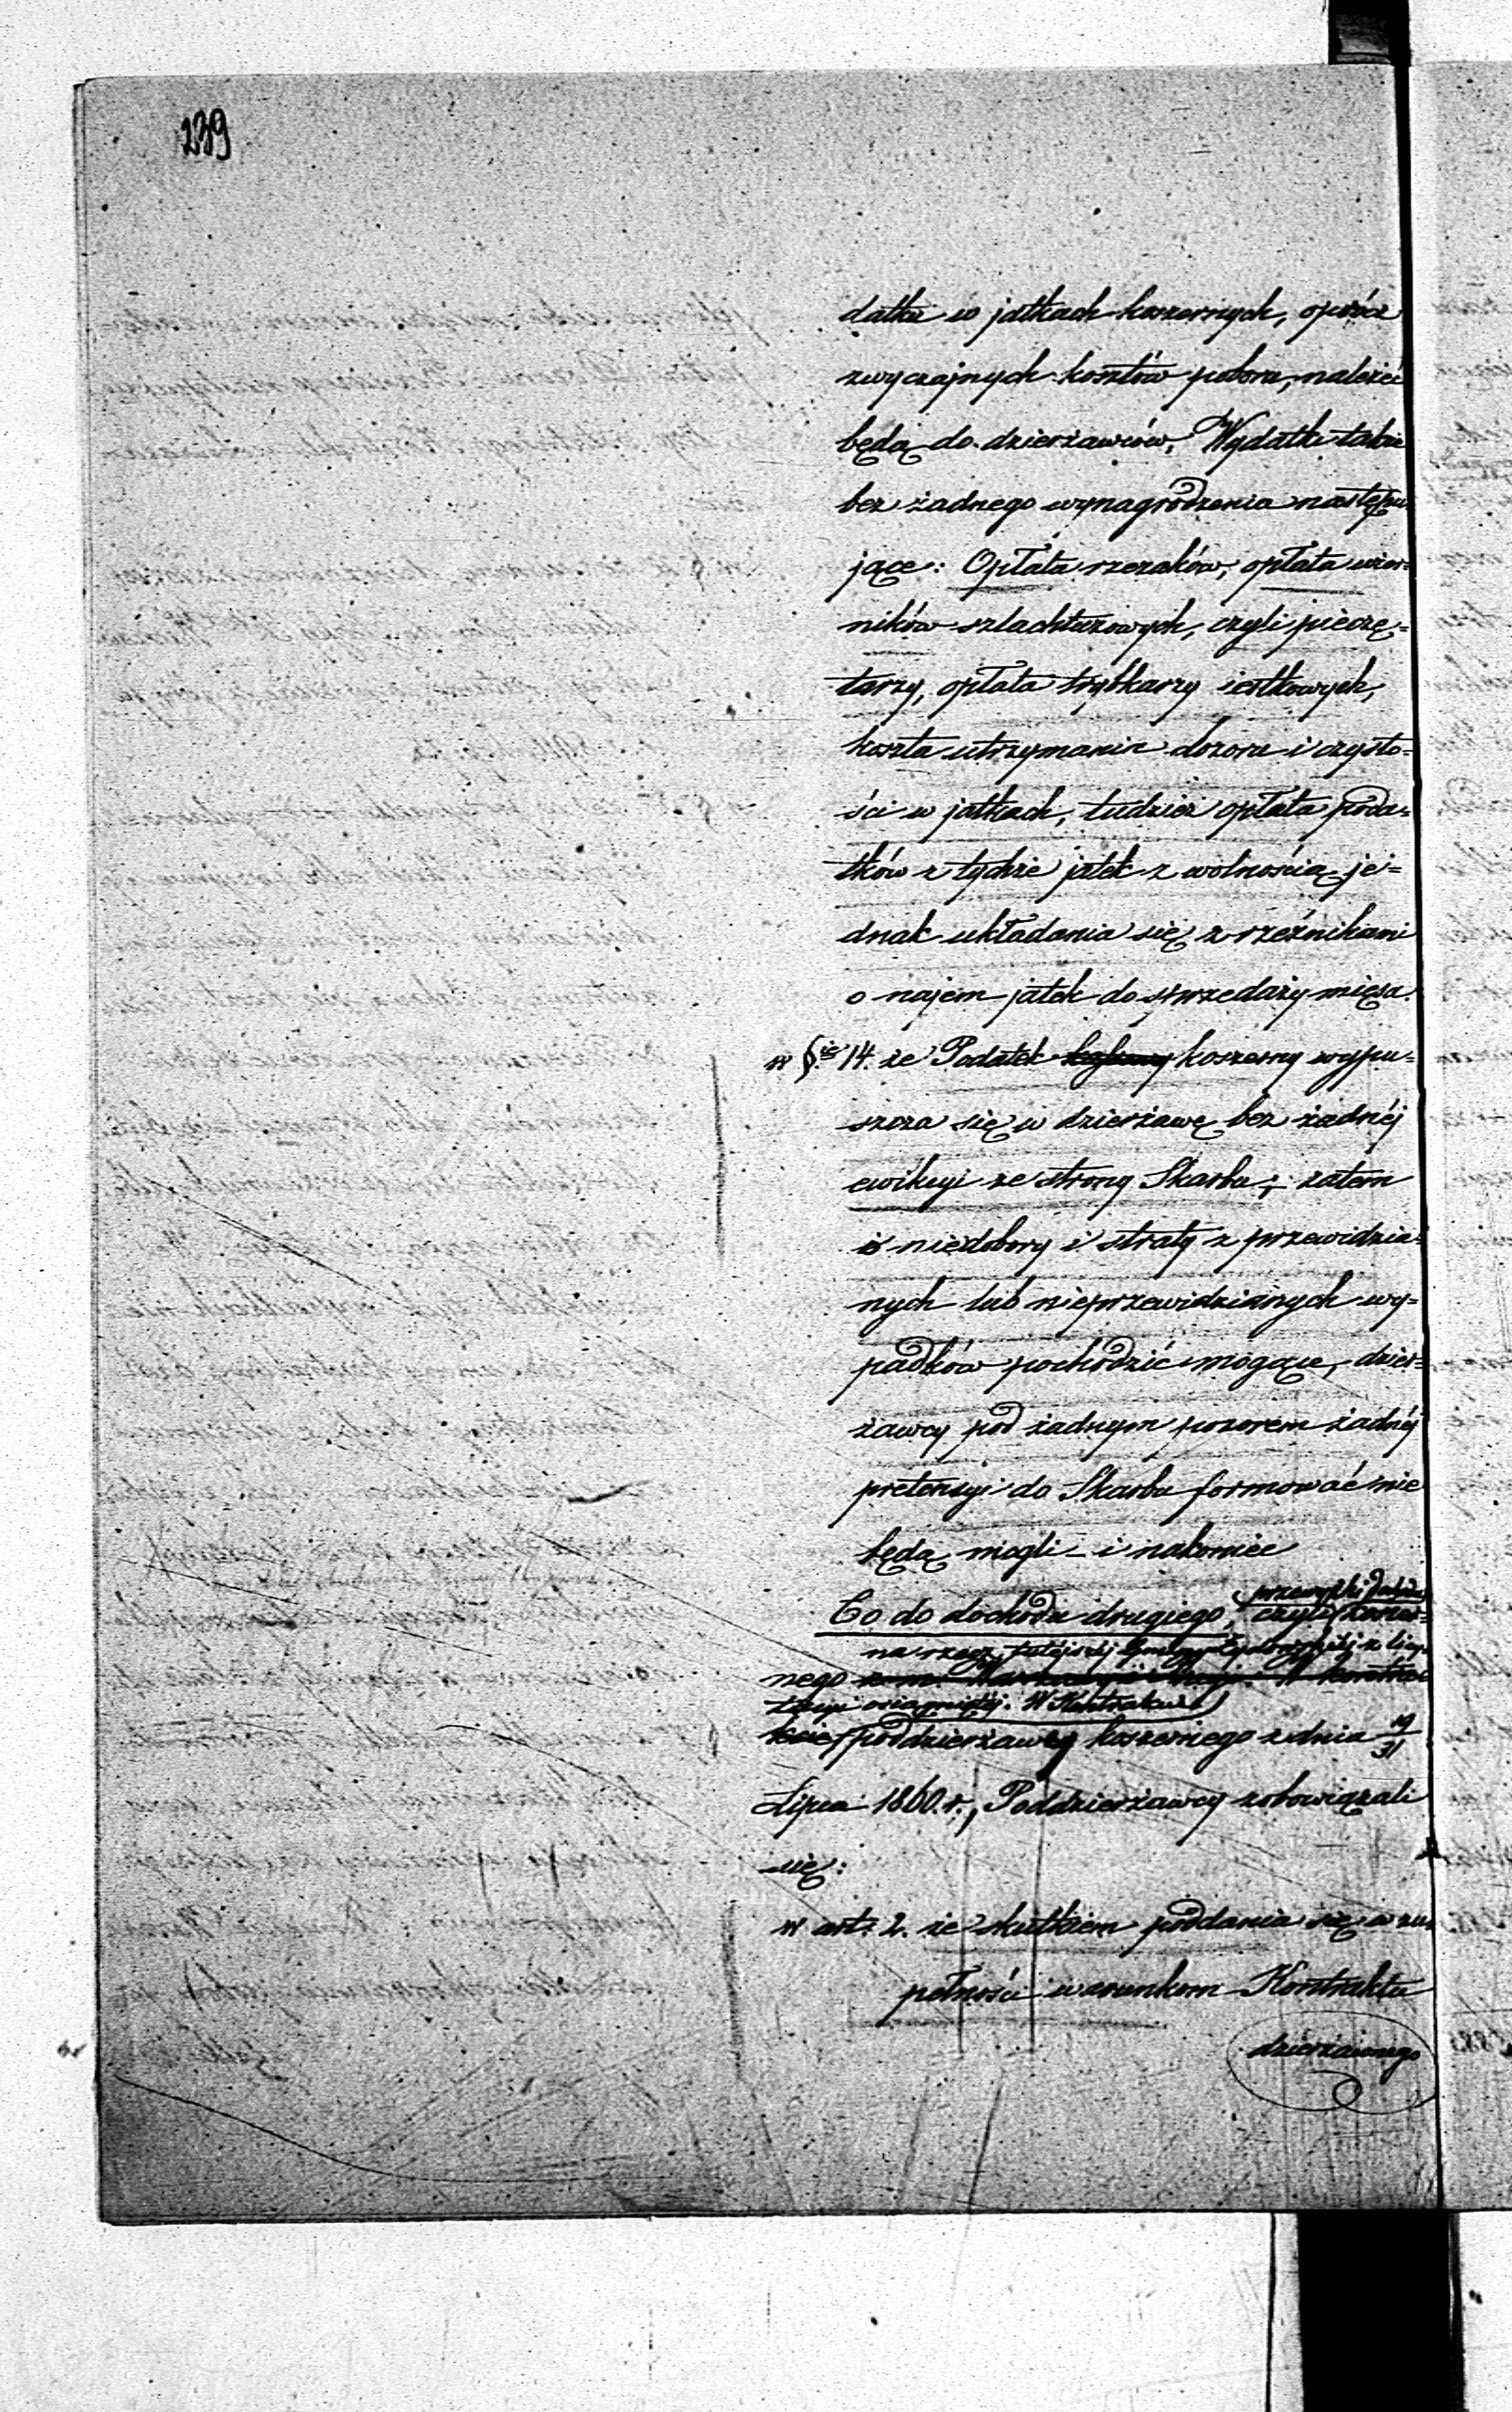 239
datku w jatkach koszernych, oprócz
zwyczajnych kosztów poboru, należeć
będą do dzierżawców, Wydatki takie
bez żadnego wynagrodzenia następu-
jące: Opłata rzezaków, opłata wier-
ników szlachtuzowych, czyli pieczę=
tarzy, opłata trybkarzy iatkowych,
koszta utrzymania dozoru i czysto=
ści w jatkach, tudzież opłata poda=
tków z tychże jatek z wolnością je=
dnak układania się z rzeźnikami
o najem jatek do sprzedaży mięsa.
w §ie 14. że Podatek koszerny wypu=
szcza się w dzierżawę bez żadnéj
ewikcyi ze strony Skarbu; zatem
niedobory i straty z przewidzia=
nych lub nieprzewidzianych wy=
padków pochodzić mogące, dzier=
żawcy pod żadnym pozorem żadnéj
pretensyi do Skarbu formować nie
będą mogli – i nakoniec
przewyżki
Co do dochodu drugiego, czyli koszer=
na rzecz tutejszéj Gminy Żydowskiéj z licy-
nego
tacyi osiągniętéj. W Kontrakcie
poddzierżawy koszernego z dnia 19/31
Lipca 1860. r., Poddzierżawcy zobowiązali
się:
w art. 2. że skutkiem poddania się w zu-
pełności warunkom Kontraktu
dzierżawnego